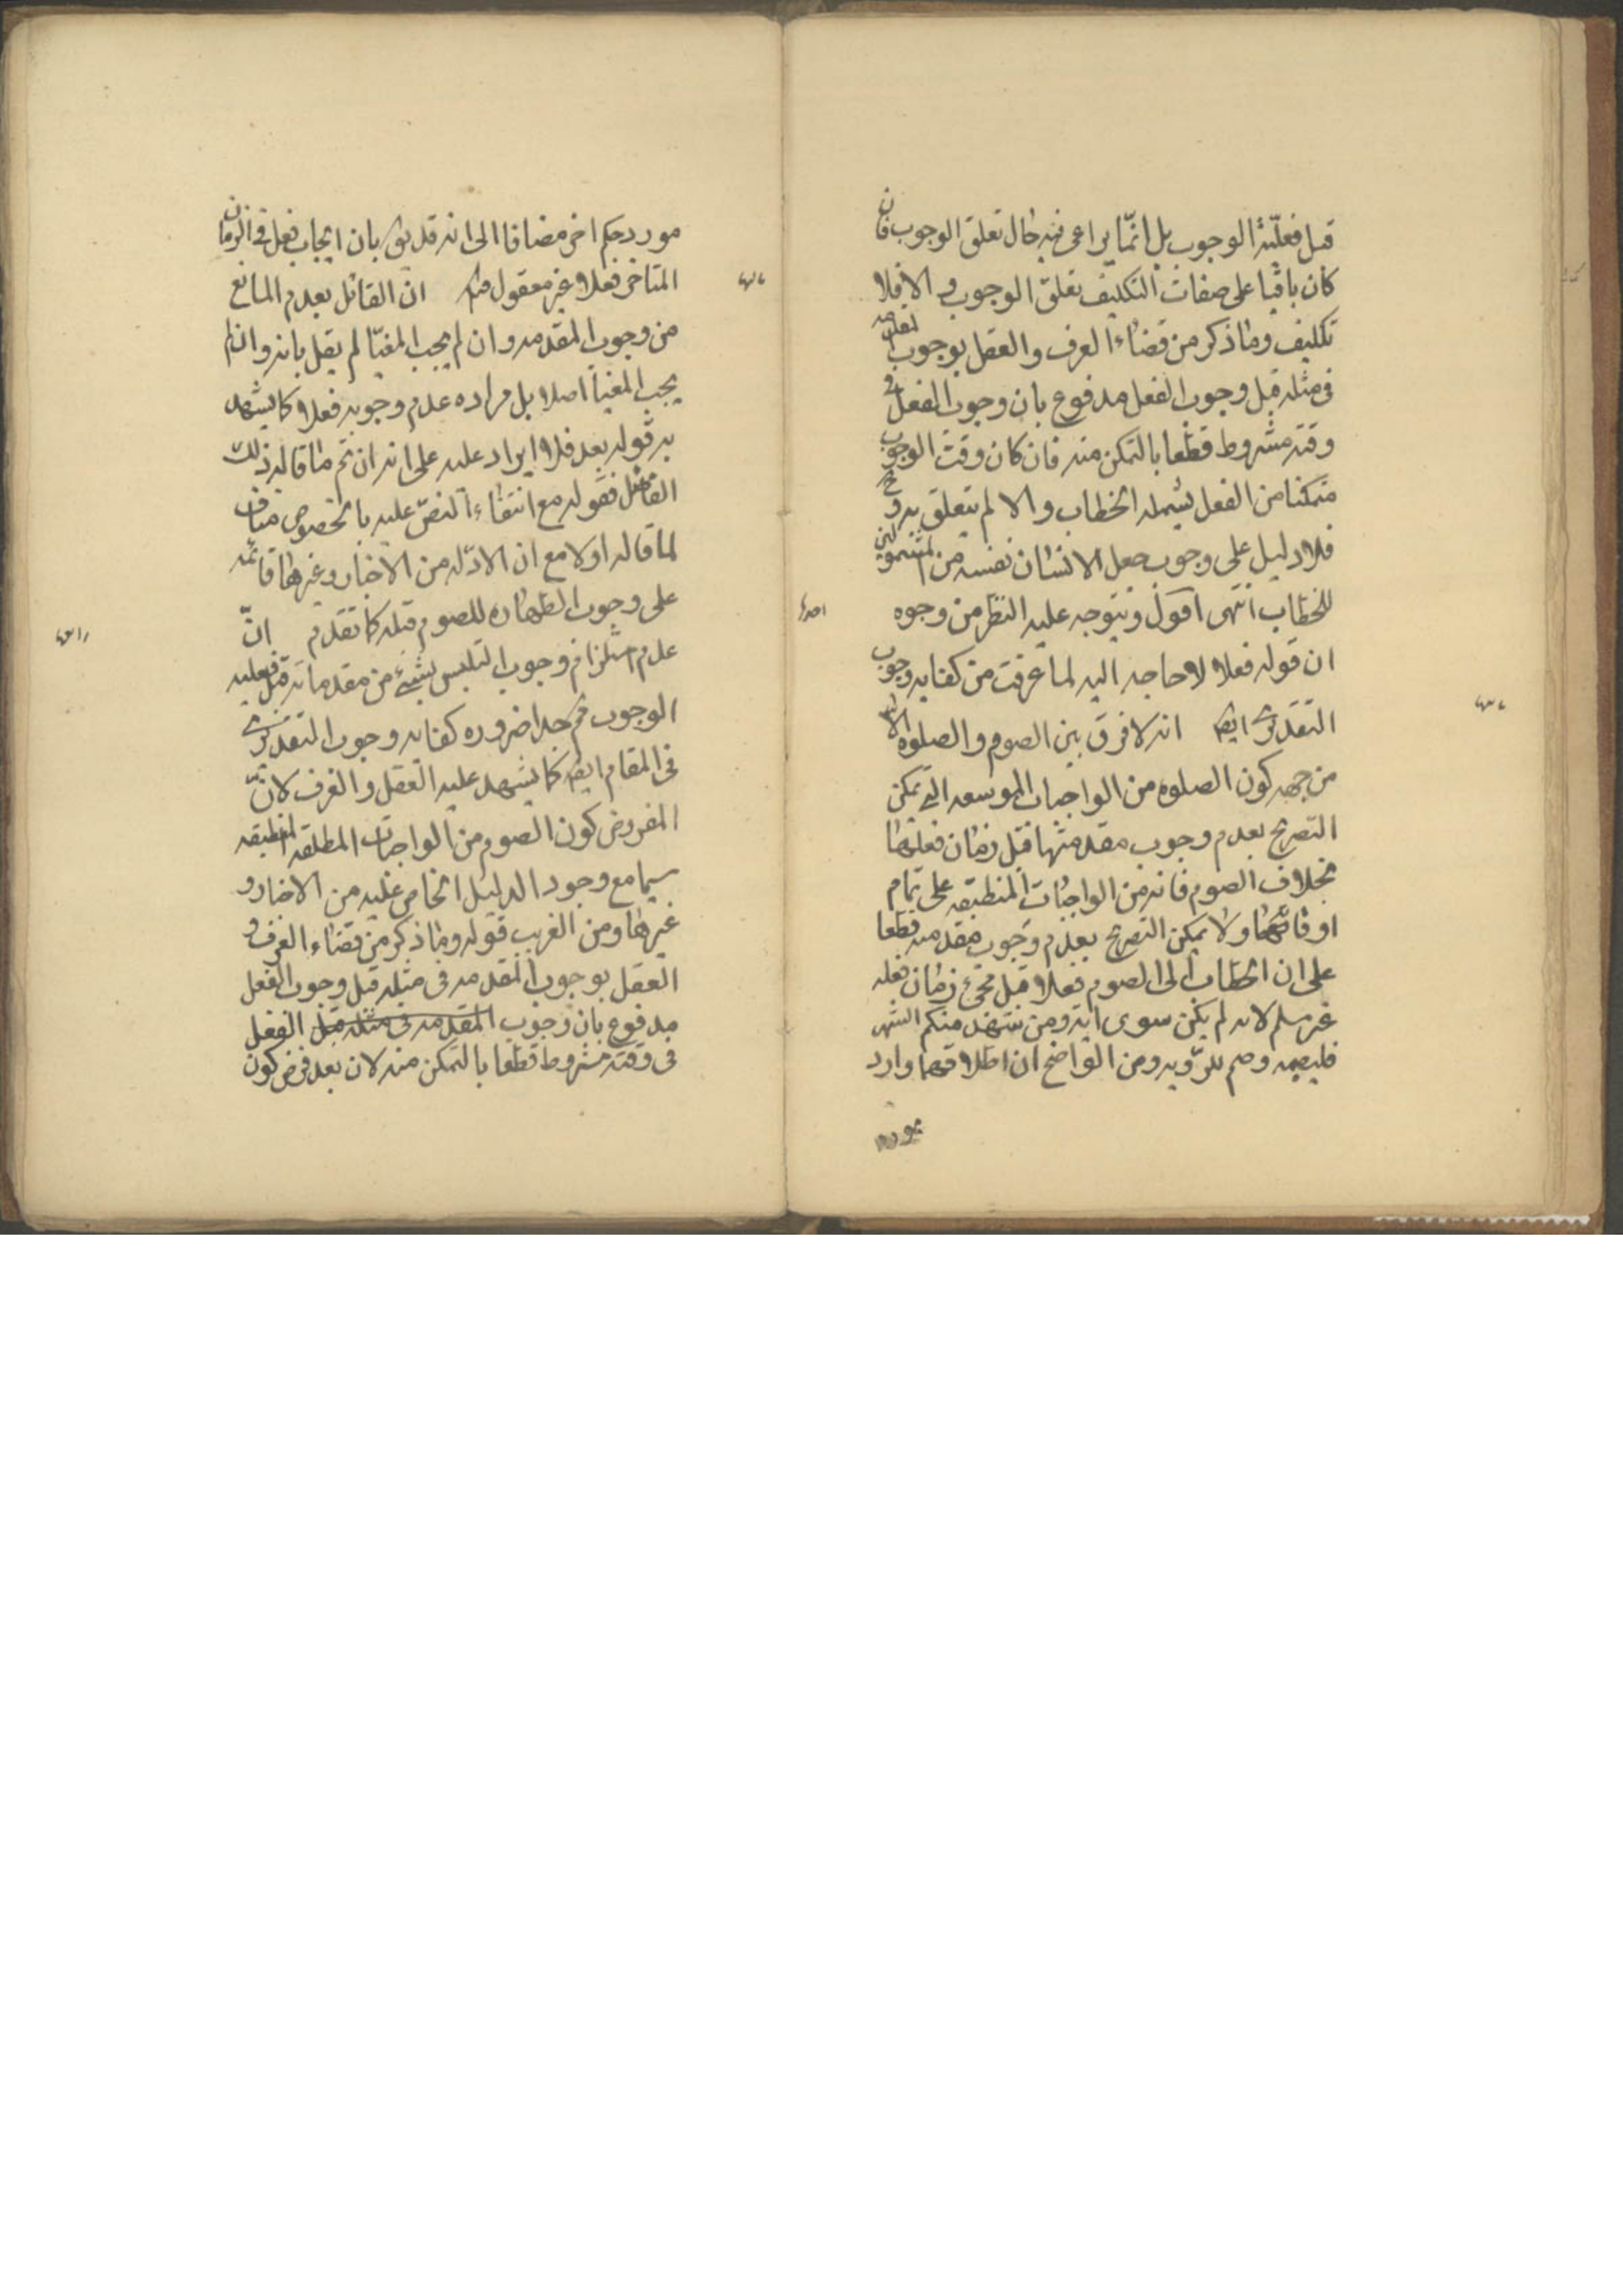 قبل فعليّة الوجوب بل انمّا يراعى فيه حال تعلق الوجوب فان
كان باقيا على صفات التكليف تعلق الوجوب والا فلا
تكليف وما ذكر من قضاء العرف والعقل بوجوب المقدمه
فى مثله قبل وجوب الفعل مدفوع بان وجوب الفعل فى
وقته مشروط قطعا بالتمكن منه فان كان وقت الوجوب
متمكنا من الفعل يشمله الخطاب والا لم يتعلق به وح
فلا دليل على وجوب جعل الانسان نفسه من المشمولين
للخطاب انتهى اقول ويتوجه عليه النظر من وجوه
احدها
ان قوله فعلا لا حاجه اليه لما عرفت من كفايه وجوب
التقديرى ايضا انه لا فرق بين الصوم والصلوه الا
من جهه كون الصلوه من الواجبات الموسعه التى يمكن
التصريح بعدم وجوب مقدمتها قبل زمان فعلها
بخلاف الصوم فانه من الواجبات المنطبقه على تمام
اوقاتها ولا يمكن التصريح بعدم وجوب مقدمته قطعا
على ان الخطاب الى الصوم فعلا قبل مجئ زمان فعله
غير مسلم لانه لم يكن سوى آيه ومن شهد منكم الشهر
فليصمه وصم للرّويه ومن الواضح ان اطلاقهما وارد
مورد
مورد حكم اخر مضافا الى انه قد يق بان ايجاب فعل فى الزمان
المتاخر فعلا غير معقول ان القائل بعدم المانع
من وجوب المقدمه وان لم يجب المغيّا لم يقل بانه وان لم
يجب المغيا اصلا بل مراده عدم وجوبه فعلا كما يشهد
به قوله بعد فلا ايراد عليه على انه ان تم ما قاله ذلك
الفاضل فقوله مع انتفاء النصّ عليه بالخصوص مناف
لما قاله اولا مع ان الادّله من الاخبار وغيرها قائمه
على وجوب الطهاره للصوم قبله كما تقدم انّ
عدم استلزام وجوب التلبس بشئ من مقدماته قبل فعليه
الوجوب ضروره كفايه وجوب التقديرى
فى المقام ايضا كما يشهد عليه العقل والعرف لانّ
المفروض كون الصوم من الواجبات المطلقه المنطبقه
سيما مع وجود الدليل الخاص عليه من الاخبار و
غيرها ومن الغريب قوله وما ذكر من قضاء العرف و
العقل بوجوب المقدمه فى مثله قبل وجوب الفعل
مدفوع بان وجوب المقدمه فى مثله قبل الفعل
فى وقته مشروط قطعا بالتمكن منه لان بعد فرض كون